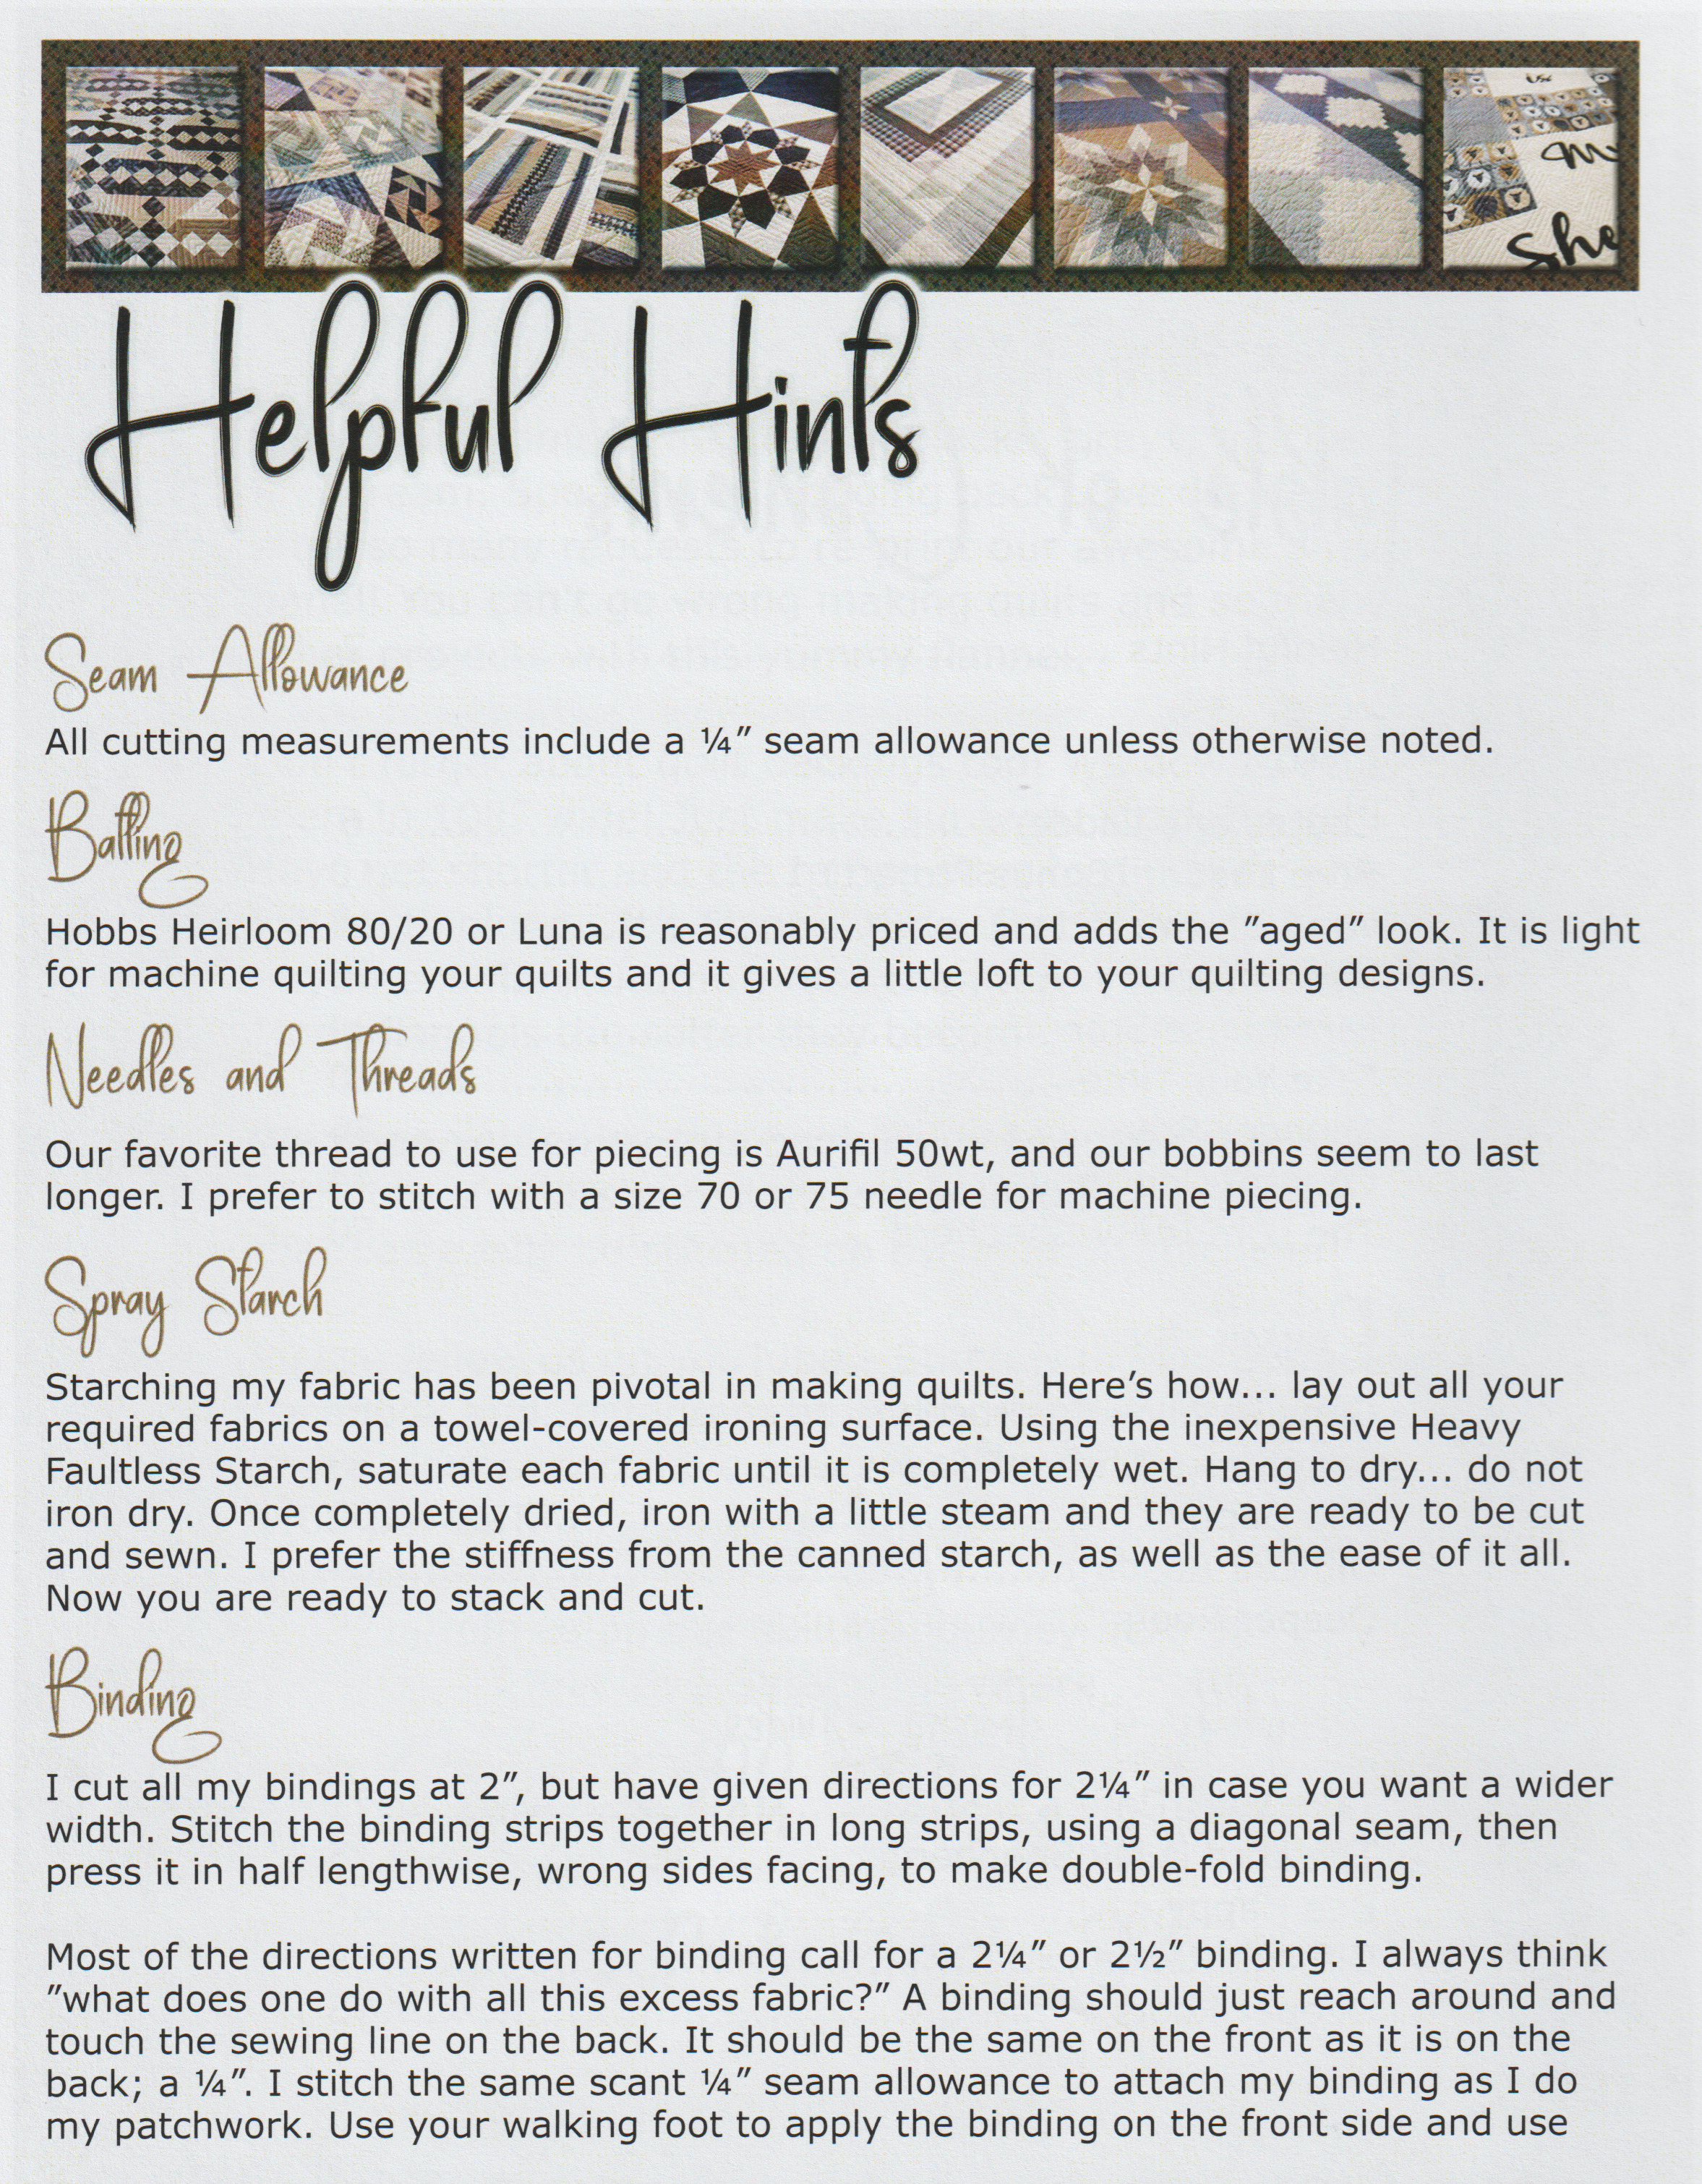 us
m
She
Helpful Hints
Seam Allowance
All cutting measurements include a ¼" seam allowance unless otherwise noted.
Batting
Hobbs Heirloom 80/20 or Luna is reasonably priced and adds the "aged" look. It is light
for machine quilting your quilts and it gives a little loft to your quilting designs.
Needles and Threads
Our favorite thread to use for piecing is Aurifil 50wt, and our bobbins seem to last
longer. I prefer to stitch with a size 70 or 75 needle for machine piecing.
Spray Starch
Starching my fabric has been pivotal in making quilts. Here’s how... lay out all your
required fabrics on a towel-covered ironing surface. Using the inexpensive Heavy
Faultless Starch, saturate each fabric until it is completely wet. Hang to dry... do not
iron dry. Once completely dried, iron with a little steam and they are ready to be cut
and sewn. I prefer the stiffness from the canned starch, as well as the ease of it all.
Now you are ready to stack and cut.
Binding
I cut all my bindings at 2", but have given directions for 2¼" in case you want a wider
width. Stitch the binding strips together in long strips, using a diagonal seam, then
press it in half lengthwise, wrong sides facing, to make double-fold binding.
Most of the directions written for binding call for a 2¼" or 2½" binding. I always think
"what does one do with all this excess fabric?" A binding should just reach around and
touch the sewing line on the back. It should be the same on the front as it is on the
back; a ¼". I stitch the same scant ¼" seam allowance to attach my binding as I do
my patchwork. Use your walking foot to apply the binding on the front side and use